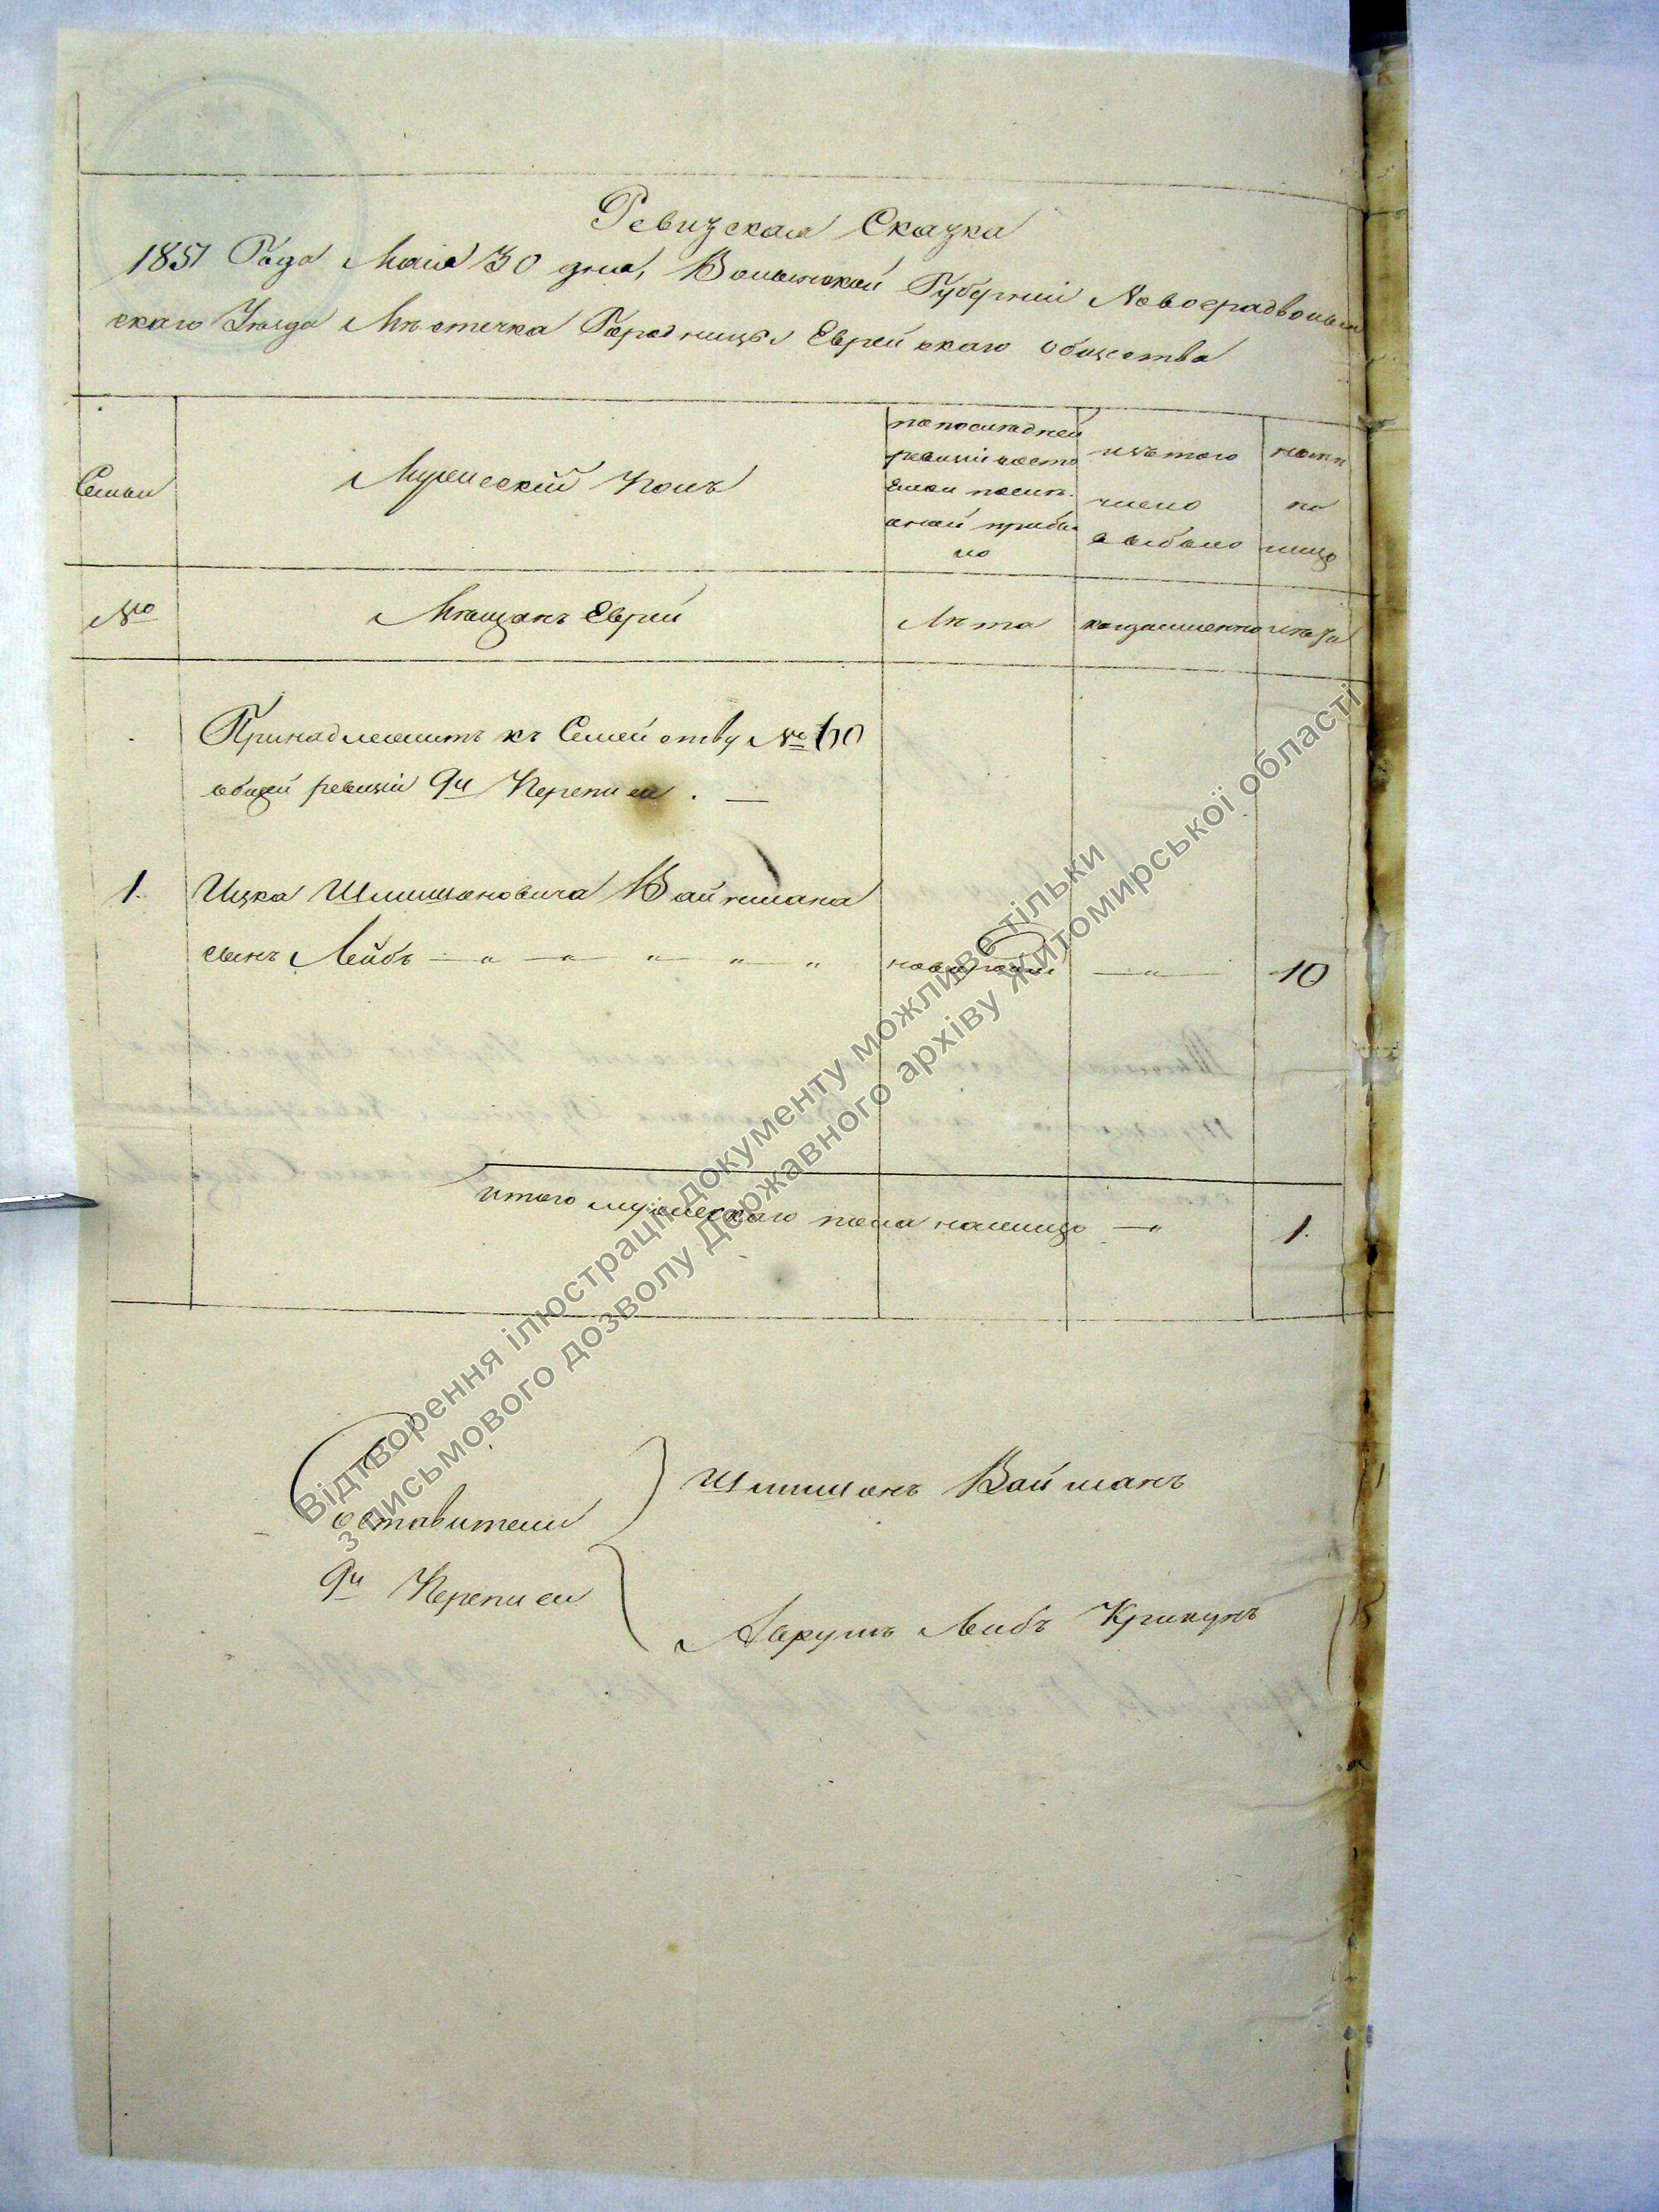 Ревизская Сказка
1851 Года Маія 30 дня, Волынской Губерніи Новоградволын
скаго Уѣзда Мѣстечка Городницы Еврейскаго общества
Семьи
Мужескій Полъ
по последней
ревизіи состо
яло и после
оной прибы
ло
изъ того
число
выбыло
нали
по
лицо
№
Мѣщанъ Еврей
Лѣта
когда именно
лѣта
Принадлежитъ къ Семейству № 60
общей ревизіи 9й Переписи . —
1. Ицка Шлимшоновича Вайнмана
сынъ Лейбъ — " — " — " — " — " — " 10
итого мужескаго пола на лицо — " 1.
Составители
9й Переписи
Шлимшонъ Вайманъ
Аврумъ Лейбъ Крикунъ
Відтворення ілюстрації документу можливе тільки
з письмового дозволу Державного архіву Житомирської області